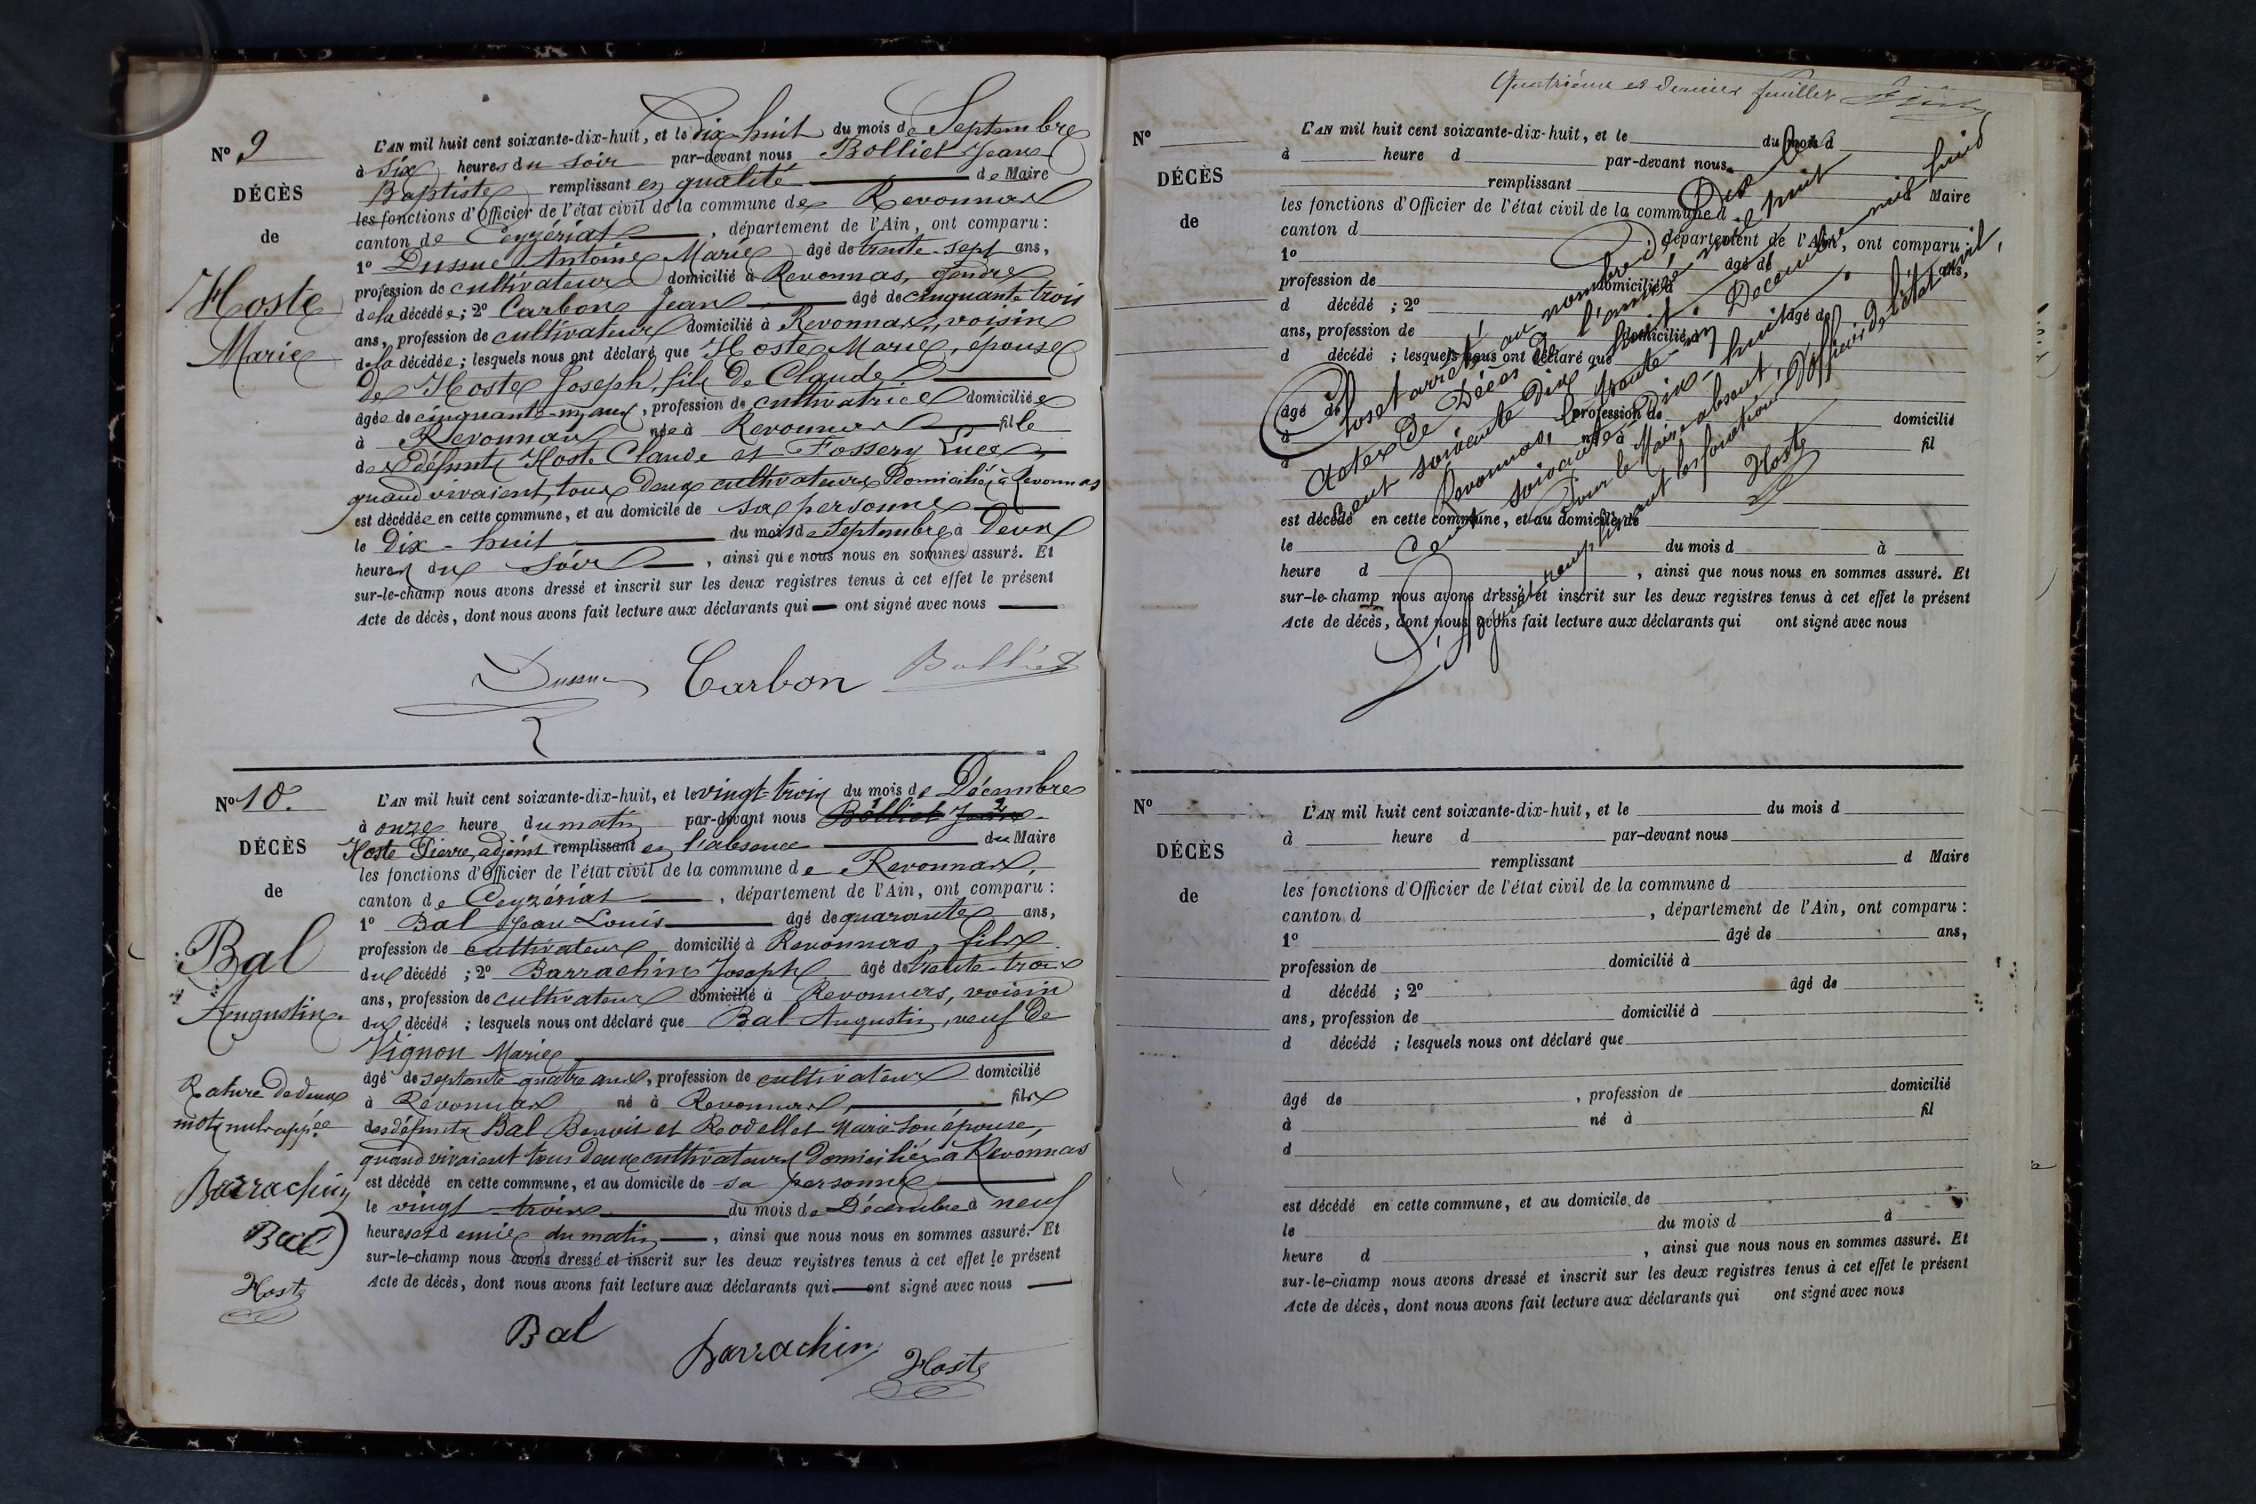 N° 9
DÉCÈS
de
Hoste
Marie
L'AN mil huit cent soixante-dix-huit, et le dix-huit du mois de Septembre
à six heures du soir par-devant nous Bolliet Jean
Baptiste remplissant en qualité de Maire
les fonctions d'Officier de l'état civil de la commune de Revonnas
canton de Ceyzériat, département de l'Ain, ont comparu :
1° Dussuc Antoine Marie âgé de trente-sept ans,
profession de cultivateur domicilié à Revonnas, gendre
de la décédée ; 2° Carbon Jean âgé de cinquante trois
ans, profession de cultivateur domicilié à Revonnas, voisin
de la décédée ; lesquels nous ont déclaré que Hoste Marie, épouse
de Hoste Joseph, fils de Claude
âgée de cinquante-six ans, profession de cultivatrice domiciliée
à Revonnas née à Revonnas fille
des défunts Hoste Claude et Fossery Luce
quand vivaient, tous deux cultivateurs Domiciliés à Revonnas
est décédée en cette commune, et au domicile de sa personne
le Dix-huit du mois de Septembre à deux
heures du soir, ainsi que nous nous en sommes assuré. Et
sur-le-champ nous avons dressé et inscrit sur les deux registres tenus à cet effet le présent
Acte de décès, dont nous avons fait lecture aux déclarants qui ont signé avec nous
Dussuc Carbon Bolliet
N° 10.
DÉCÈS
de
Bal
Augustin.
Rature de deux
mots nuls appée
Barrachin
Bal
Hoste
L'AN mil huit cent soixante-dix-huit, et le vingt-trois du mois de Décembre
à onze heure du matin par-devant nous Bolliet Jean
Hoste Pierre, adjoint remplissant en l'absence du Maire
les fonctions d'Officier de l'état civil de la commune de Revonnas,
canton de Ceyzériat, département de l'Ain, ont comparu :
1° Bal Jean Louis âgé de quarante ans,
profession de cultivateur domicilié à Revonnas, fils
du décédé ; 2° Barrachin Joseph âgé de trente-trois
ans, profession de cultivateur domicilié à Revonnas, voisin
du décédé ; lesquels nous ont déclaré que Bal Augustin, veuf de
Vignon Marie
âgé de septante quatre ans, profession de cultivateur domicilié
à Revonnas né à Revonnas, fils
des défunts Bal Benoit et Rodellet Marie son épouse,
quand vivaient tous deux cultivateurs domiciliés à Revonnas
est décédé en cette commune, et au domicile de sa personne
le vingt trois du mois de Décembre à neuf
heures et demie du matin, ainsi que nous nous en sommes assuré. Et
sur-le-champ nous avons dressé et inscrit sur les deux registres tenus à cet effet le présent
Acte de décès, dont nous avons fait lecture aux déclarants qui ont signé avec nous
Bal Barrachin Hoste
Quatrième et dernier feuillet
N°
DÉCÈS
de
L'AN mil huit cent soixante-dix-huit, et le du mois d
à heure d par-devant nous
remplissant Maire
les fonctions d'Officier de l'état civil de la commune d
canton d, département de l'Ain, ont comparu :
1° âgé de ans,
profession de domicilié à
d décédé ; 2° âgé de
ans, profession de domicilié à
d décédé ; lesquels nous ont déclaré que
âgé de profession de domicilié
à né à fil
d
est décédé en cette commune, et au domicile de
le du mois d à
heure d, ainsi que nous nous en sommes assuré. Et
sur-le-champ nous avons dressé et inscrit sur les deux registres tenus à cet effet le présent
Acte de décès, dont nous avons fait lecture aux déclarants qui ont signé avec nous
Clos et arrêté au nombre de Dix les
actes de Décès de l'année mil huit
cent soixante Dix huit.
Revonnas, le trente-un Décembre mil huit
cent soixante-Dix-huit.
Pour le Maire absent,
L'adjoint remplissant les fonctions d'officier de l'état civil,
Hoste
N°
DÉCÈS
de
L'AN mil huit cent soixante-dix-huit, et le du mois d
à heure d par-devant nous
remplissant d Maire
les fonctions d'Officier de l'état civil de la commune d
canton d, département de l'Ain, ont comparu :
1° âgé de ans,
profession de domicilié à
d décédé ; 2° âgé de
ans, profession de domicilié à
d décédé ; lesquels nous ont déclaré que
âgé de, profession de domicilié
à né à fil
d
est décédé en cette commune, et au domicile de
le du mois d à
heure d, ainsi que nous nous en sommes assuré. Et
sur-le-champ nous avons dressé et inscrit sur les deux registres tenus à cet effet le présent
Acte de décès, dont nous avons fait lecture aux déclarants qui ont signé avec nous